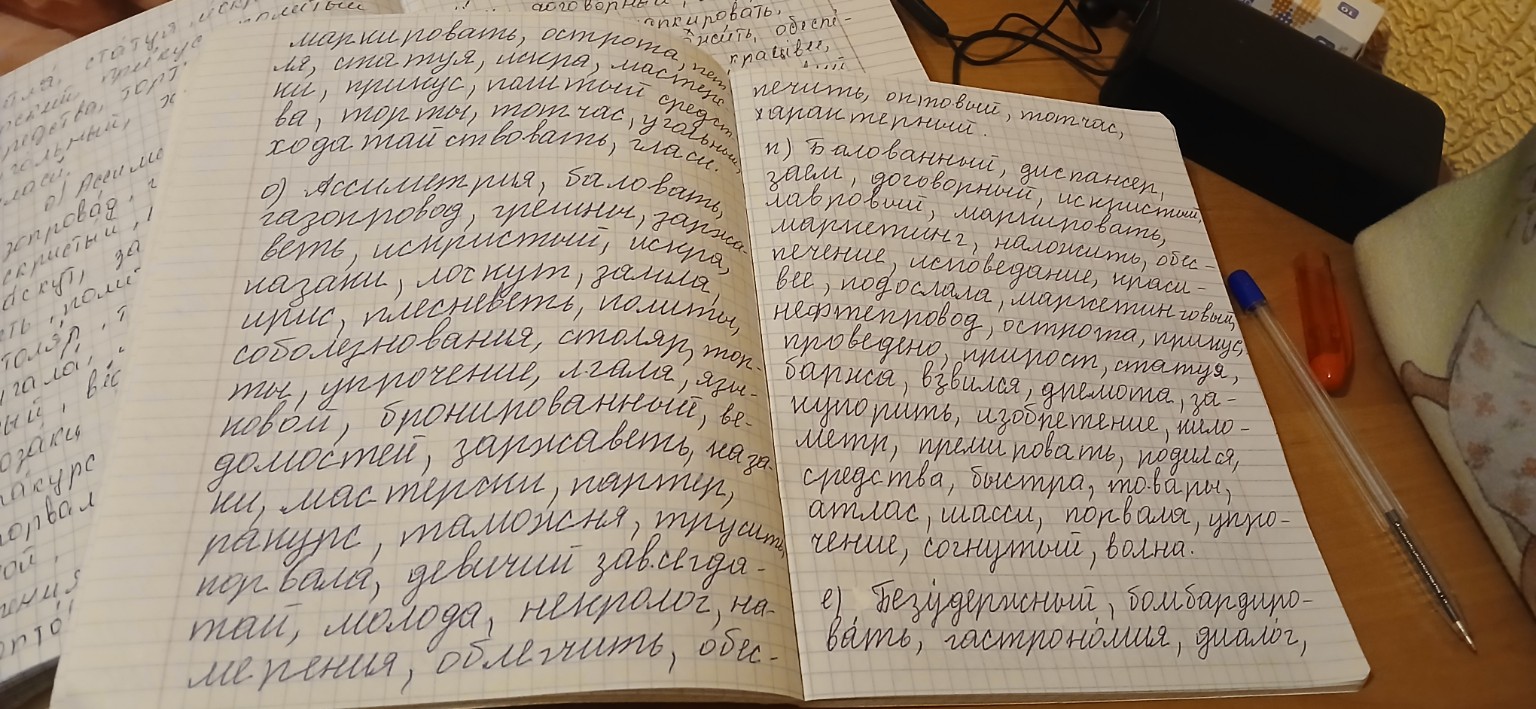 маркировать, острота,
ля, статуя, искра, мастерс
ки, прикус, политый средст
ва, торты, тотчас, угольный,
ходатайствовать, гласи.
о) Ассиметрия, баловать,
газопровод, грешны, заржа-
веть, искристый, искра,
казаки, лоскут, залила,
ирис, плесневеть, политы,
соболезнования, столяр, тор-
ты, упрочение, лгала, язы-
ковой, бронированный, ве-
домостей, заржаветь, каза-
ки, мастерски, партер,
ракурс, таможня, трусить,
порвала, девичий завсегда-
тай, молода, некролог, на-
мерения, облегчить, обес-
печить, оптовый, тотчас,
характерный.
п) Балованный, диспансер,
заём, договорный, искристый,
лавровый, маркировать,
маркетинг, наложить, обес-
печение, исповедание, краси-
вее, подослала, маркетинговый,
нефтепровод, острота, прикус,
проведено, прирост, статуя,
баржа, взвился, дремота, за-
купорить, изобретение, кило-
метр, премировать, родился,
средства, быстра, товары,
атлас, шасси, порвала, упро-
чение, согнутый, волна.
е) Безудержный, бомбардиро-
ва́ть, гастроно́мия, диало́г,